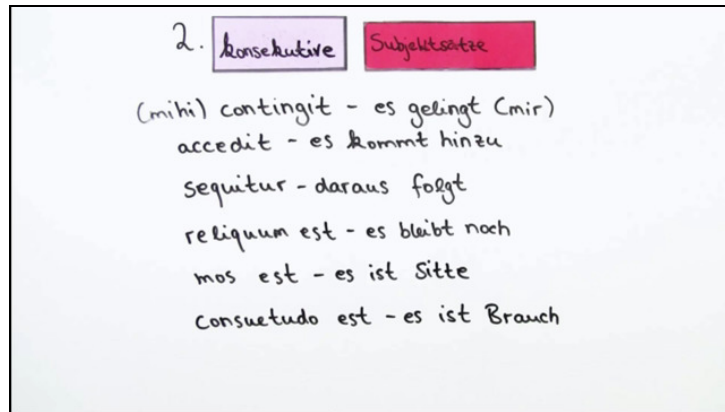 2. konsekutive Subjektsätze
(mihi) contingit - es gelingt (mir)
accedit - es kommt hinzu
sequitur - daraus folgt
reliquum est - es bleibt noch
mos est - es ist Sitte
consuetudo est - es ist Brauch